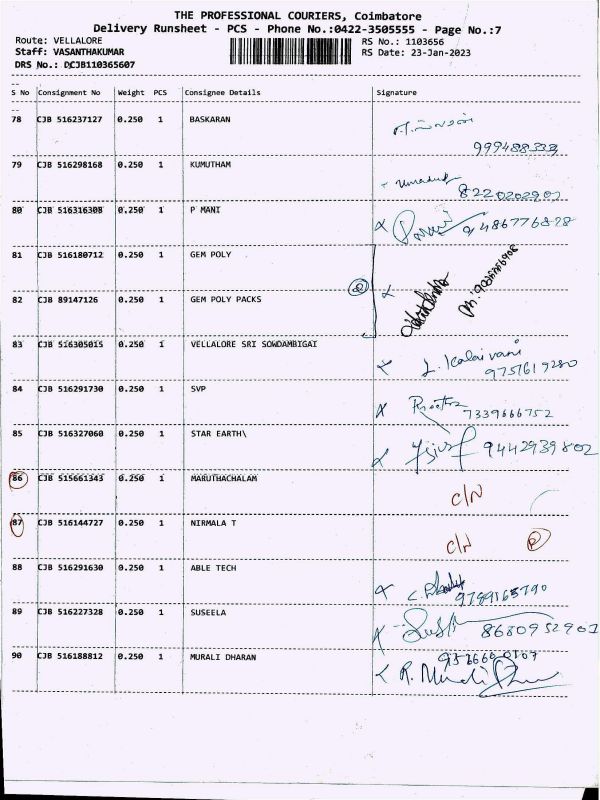 THE PROFESSIONAL COURIERS, Coimbatore
Delivery Runsheet - PCS - Phone No.:0422-3505555 - Page No.:7
Route: VELLALORE RS No.: 1103656
Staff: VASANTHAKUMAR RS Date: 23-Jan-2023
DRS No.: DCJB110365607
S No Consignment No Weight PCS Consignee Details Signature
78 CJB 516237127 0.250 1 BASKARAN
79 CJB 516298168 0.250 1 KUMUTHAM
8220202907
80 CJB 516316308 0.250 1 P MANI
9486776828
81 CJB 516180712 0.250 1 GEM POLY
2
82 CJB 89147126 0.250 1 GEM POLY PACKS
83 CJB 516305015 0.250 1 VELLALORE SRI SOWDAMBIGAI
L. Kalaivani
9751619280
84 CJB 516291730 0.250 1 SVP
7339666752
85 CJB 516327060 0.250 1 STAR EARTH\
9442939802
86 CJB 515661343 0.250 1 MARUTHACHALAM C/N
87 CJB 516144727 0.250 1 NIRMALA T C/N 2
88 CJB 516291630 0.250 1 ABLE TECH
9799165790
89 CJB 516227328 0.250 1 SUSEELA
8680952901
90 CJB 516188812 0.250 1 MURALI DHARAN
R. Murali